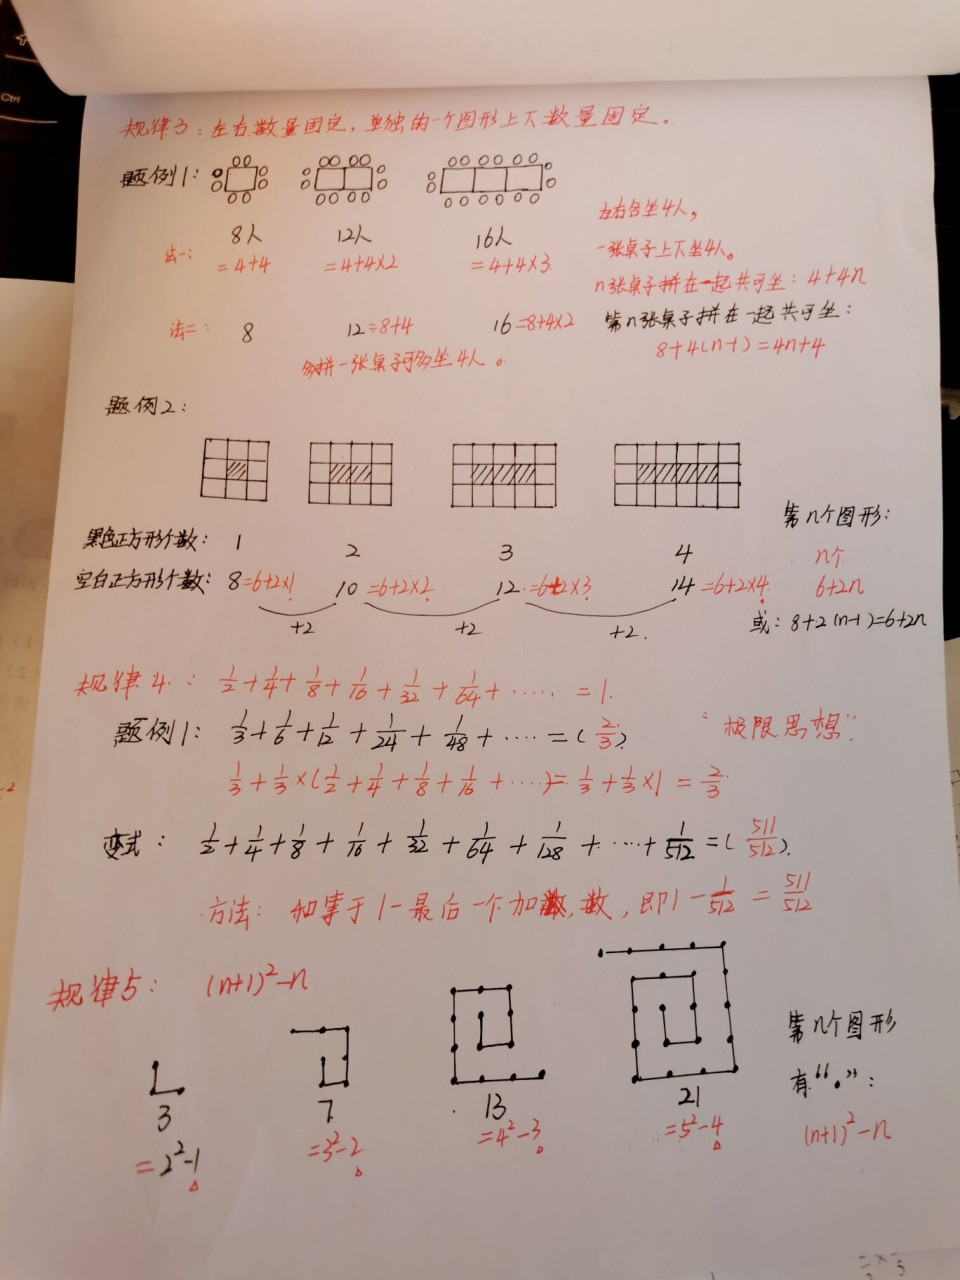 Ctrl
规律3：左右数量固定，单独的一个图形上下数量固定。
题例1：
8人 12人 16人
左右各坐4人，
法一： =4+4 =4+4×2 =4+4×3
一张桌子上下坐4人。
n张桌子拼在一起共可坐：4+4n
法二： 8 12=8+4 16=8+4×2
第n张桌子拼在一起共可坐：
8+4(n-1)=4n+4
多拼一张桌子可多坐4人。
题例2：
第n个图形：
黑色正方形个数： 1 2 3 4 n个
空白正方形个数： 8=6+2×1 10=6+2×2 12=6+2×3 14=6+2×4 6+2n
+2 +2 +2 或：8+2(n-1)=6+2n
规律4： 1/2+1/4+1/8+1/16+1/32+1/64+……=1.
题例1： 1/3+1/6+1/12+1/24+1/48+……=(2/3) “极限思想”
1/3+1/3×(1/2+1/4+1/8+1/16+……)=1/3+1/3×1=2/3
变式： 1/2+1/4+1/8+1/16+1/32+1/64+1/128+…+1/512=(511/512).
方法：和等于1-最后一个加数，即1-1/512=511/512
规律5： (n+1)²-n
第n个图形
有“.”：
3 7 13 21
=2²-1 =3²-2 =4²-3 =5²-4 (n+1)²-n